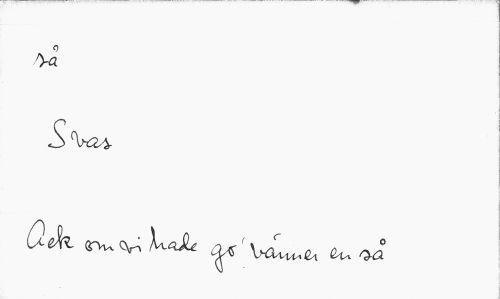 så
Svas
Ack om vi hade go' vänner en så